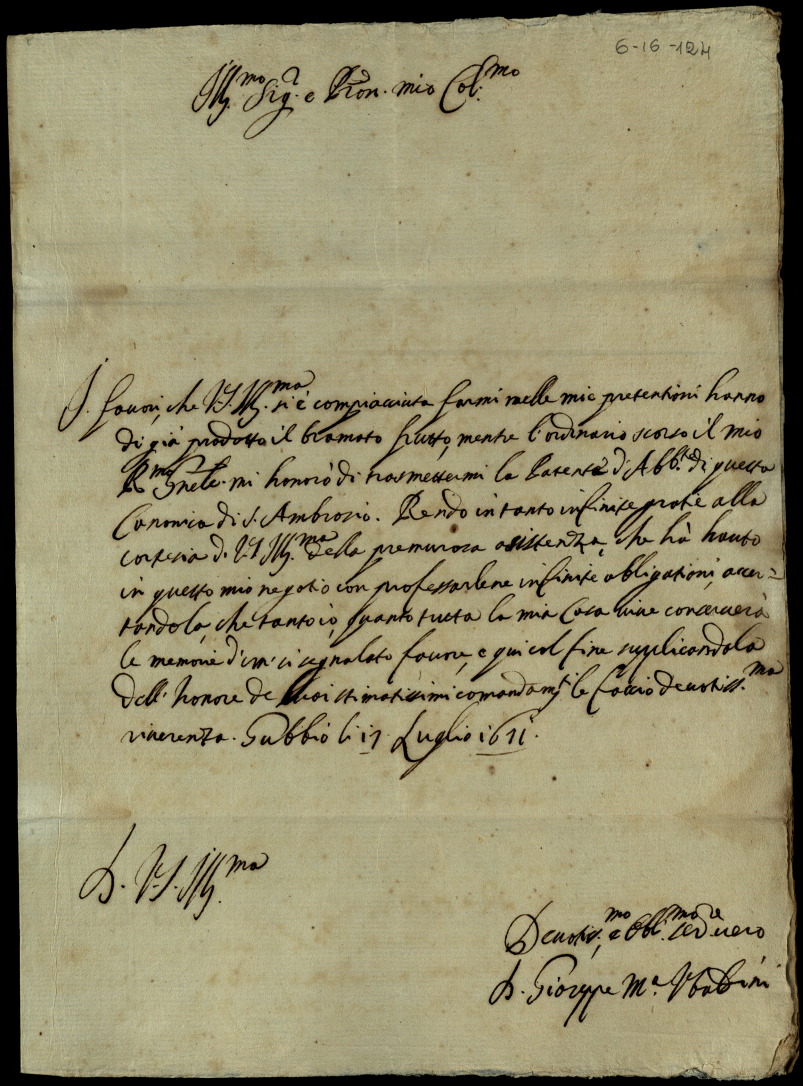 6-16-124
Ill.mo Sig.r e Pron. mio Col.mo
I favori, che V.S. Ill.ma si è compiacciuta farmi nelle mie pretentioni hanno
di già prodotto il bramato frutto, mentre l'ordinario scorso il mio
R.mo Gnele. mi honorò di trasmettermi la Patente d'Abb.e di questa
Canonica di S. Ambrosio. Rendo in tanto infinite gratie alla
cortesia di V.S. Ill.ma della premurosa assistenza, che hà hauto
in questo mio negotio con professarlene infinite obligationi, accer=
tandola, che tanto io, quanto tutta la mia Casa vive conserverà
le memorie d'un si segnalato favore, e qui col fine supplicandola
dell'honore de suoi stimatissimi comandam.ti le faccio devotiss.ma
riverenza. Gubbio li 17 Luglio
D. V.S. Ill.ma
Devotis.mo e Obl.mo Ser.re vero
D. Gioseppe M.a Ubaldini